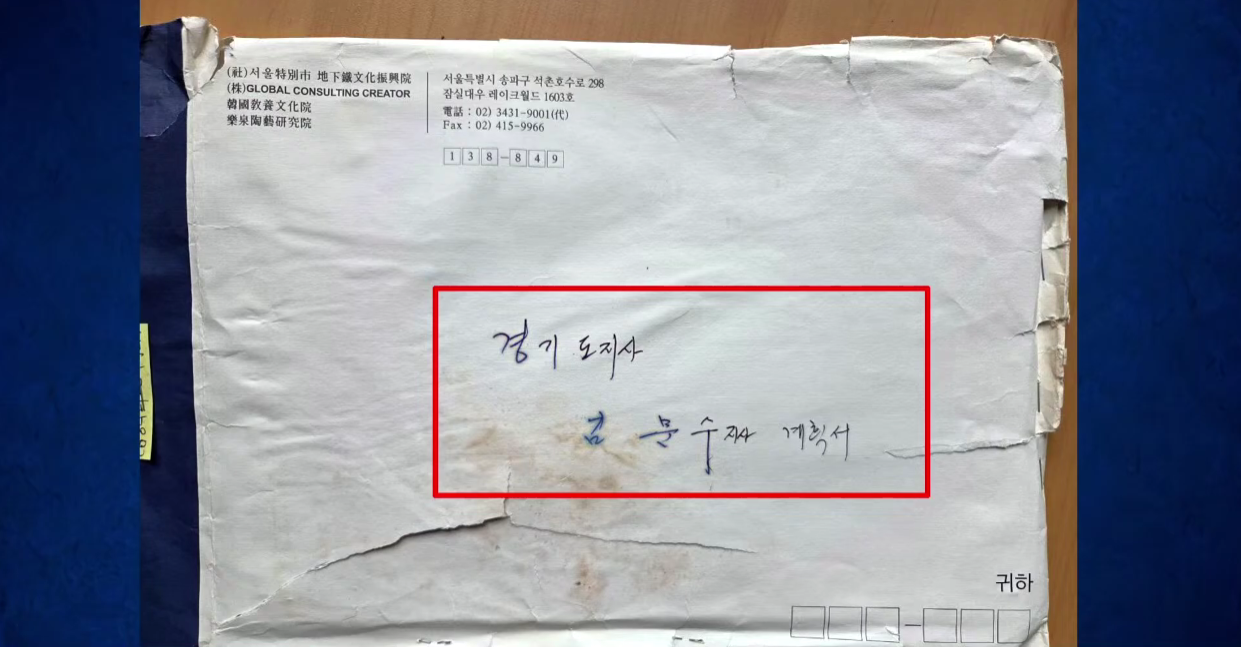 (社)서울特別市 地下鐵文化振興院
(株)GLOBAL CONSULTING CREATOR
韓國敎養文化院
樂泉陶藝硏究院
서울특별시 송파구 석촌호수로 298
잠실대우 레이크월드 1603호
電話 : 02) 3431-9001(代)
Fax : 02) 415-9966
138-849
경기도지사
김문수 지사 계획서
귀하